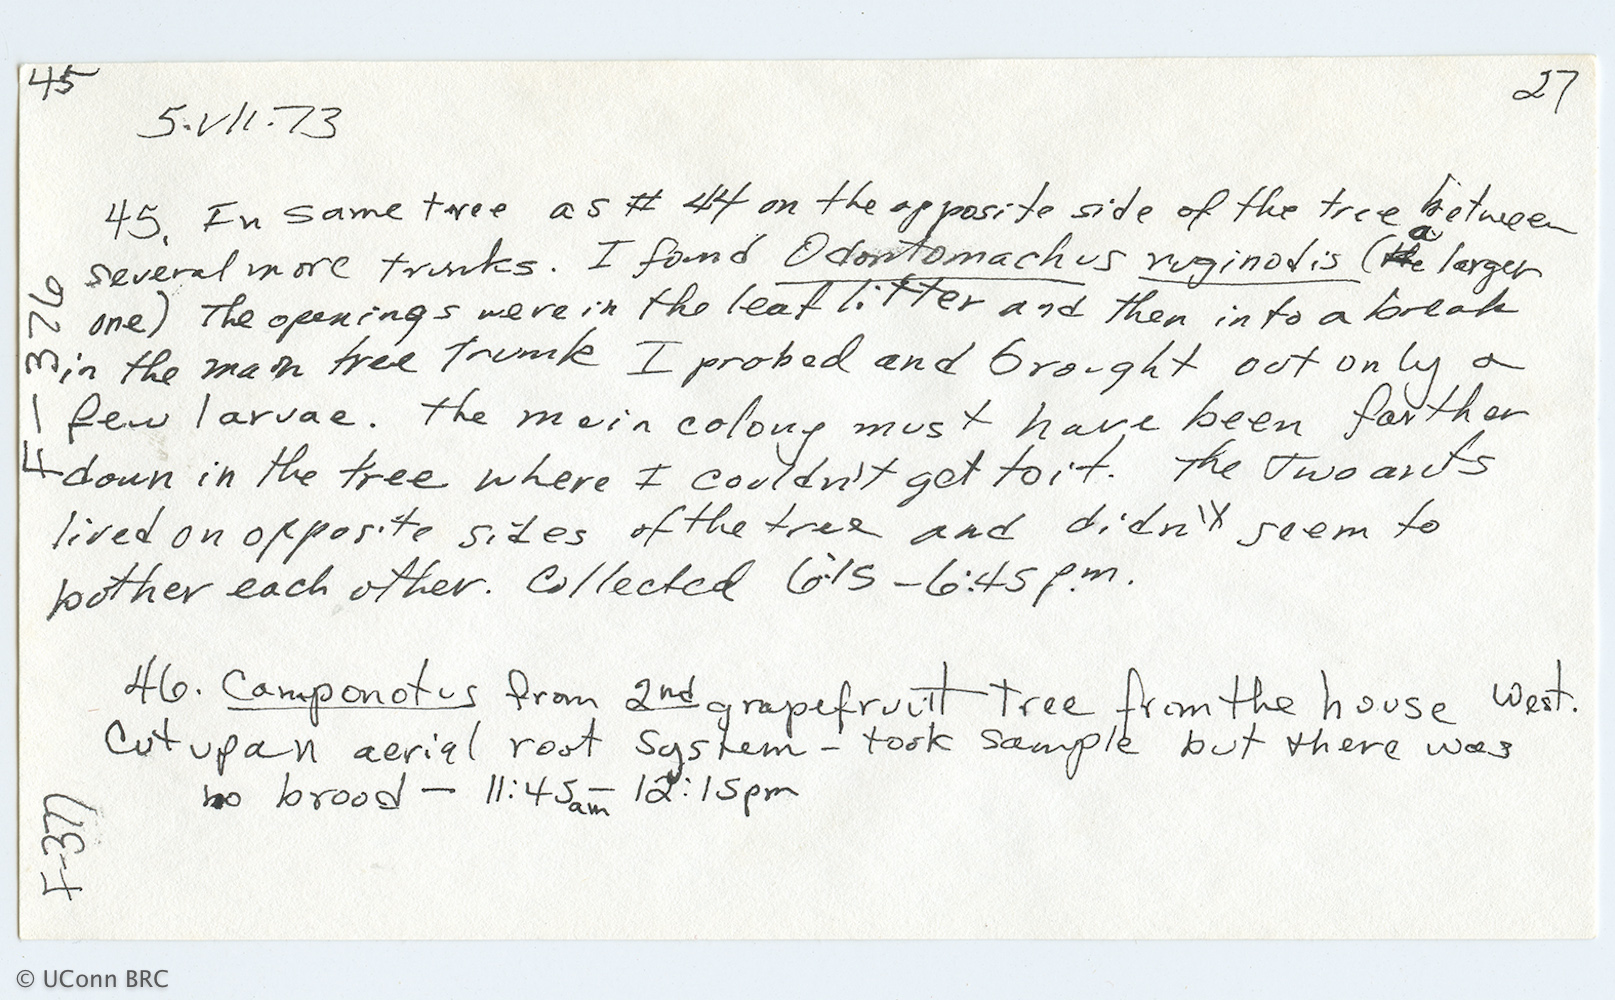 45
27
5.VII.73
45. In same tree as # 44 on the opposite side of the tree between
several more trunks. I found Odontomachus ruginodis (a larger
one) The openings were in the leaf litter and then into a break
in the main tree trunk I probed and brought out only a
few larvae. The main colony must have been farther
down in the tree where I couldn't get to it. The two ants
lived on opposite sides of the tree and didn't seem to
bother each other. Collected 6:15 - 6:45 p.m.
F-376
46. Camponotus from 2nd grapefruit tree from the house West.
Cut up an aerial root system - took sample but there was
no brood - 11:45am - 12:15pm
F-377
© UConn BRC